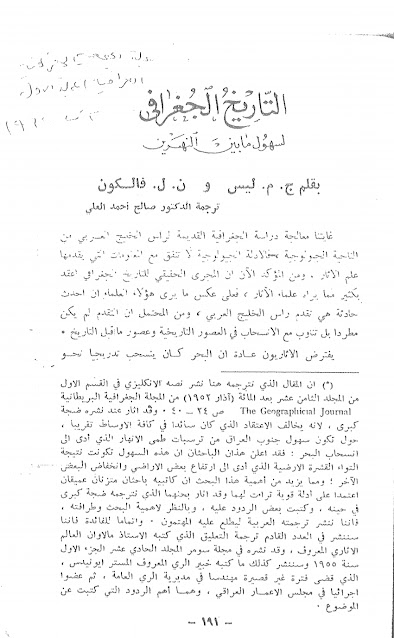 التاريخ الجغرافي
لسهول مابين النهرين
بقلم ج. م. ليس و ن. ل. فالسكون
ترجمة الدكتور صالح احمد العلي
غايتنا معالجة دراسة الجغرافية القديمة لراس الخليج العربي من
الناحية الجيولوجية لا تتفق مع المعلومات التي يقدمها
علم الآثار ، ومن المؤكد الآن ان المجرى الحقيقي للتاريخ الجغرافي اعقد
بكثير مما يراه علماء الآثار ، فعلى عكس ما يرى هؤلاء العلماء ان احدث
حادثة هي تقدم راس الخليج العربي ، ومن المحتمل ان التقدم لم يكن
مطردا بل تناوب مع الانسحاب في العصور التاريخية وعصور ماقبل التاريخ •
يفترض الآثاريون عادة ان البحر كان ينسحب تدريجيا نحو
(*) ان المقال الذي نترجمه هنا نشر نصه الانكليزي في القسم الاول
من المجلد الثامن عشر بعد المائة (آذار ١٩٥٢) من المجلة الجغرافية البريطانية
The Geographical Journal ص ٢٤ - ٤٠ • وقد اثار عند نشره ضجة
كبرى ، لانه يخالف الاعتقاد الذي كان سائدا في كافة الاوساط تقريبا ،
حول تكون سهول جنوب العراق من ترسبات طمى الانهار الذي أدى الى
انسحاب البحر : فقد اعلن هذان الباحثان ان هذه السهول تكونت نتيجة
التواء القشرة الارضية الذي أدى الى ارتفاع بعض الاراضي وانخفاض البعض
الآخر ؛ ومما يزيد من اهمية هذا البحث ان كاتبيه باحثان متزنان عميقان
اعتمدا على ادلة قوية وقد اثار بحثهما الذي نترجمه ضجة كبرى
في حينه ، وكتبت بعض الردود عليه ، وبالنظر لاهمية البحث وطرافته ،
فاننا ننشر ترجمته العربية ليطلع عليه المهتمون • واتماما للفائدة فاننا
سننشر في العدد القادم ترجمة التعليق الذي كتبه الاستاذ مالاوان العالم
الاثاري المعروف ، وقد نشره في مجلة سومر المجلد الحادي عشر الجزء الاول
سنة ١٩٥٥ وسننشر كذلك ما كتبه خبير الري المعروف المستر ايونيدس ،
الذي قضى فترة غير قصيرة مهندسا في مديرية الري العامة ، ثم عضوا
اجرائيا في مجلس الاعمار العراقي ، وهما أهم الردود التي كتبت عن
الموضوع •
- ١٩١ -